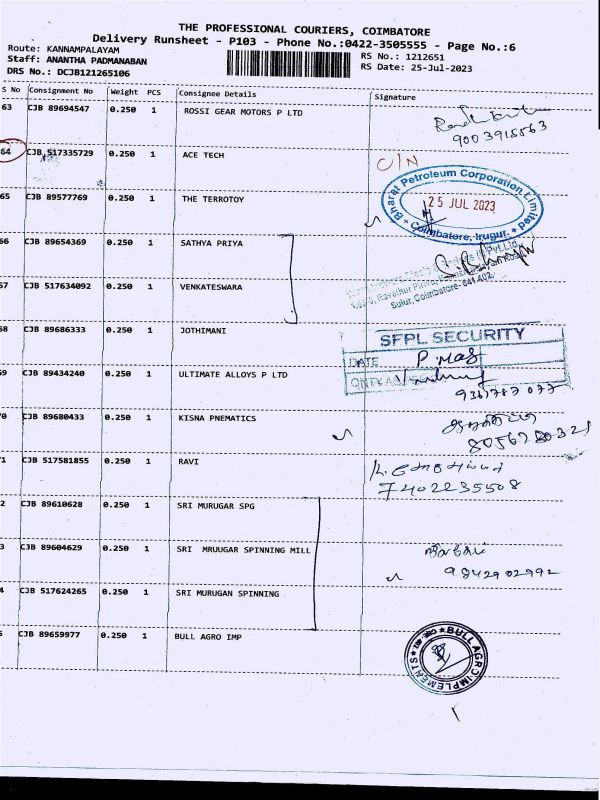 THE PROFESSIONAL COURIERS, COIMBATORE
Delivery Runsheet - P103 - Phone No.:0422-3505555 - Page No.:6
Route: KANNAMPALAYAM
Staff: ANANTHA PADMANABAN
DRS No.: DCJB121265106
RS No.: 1212651
RS Date: 25-Jul-2023
S No Consignment No Weight PCS Consignee Details Signature
63 CJB 89694547 0.250 1 ROSSI GEAR MOTORS P LTD
9003915563
64 CJB 517335729 0.250 1 ACE TECH
C/N
65 CJB 89577769 0.250 1 THE TERROTOY
Bharat Petroleum Corporation Limited
25 JUL 2023
Coimbatore, Irugur.
66 CJB 89654369 0.250 1 SATHYA PRIYA
67 CJB 517634092 0.250 1 VENKATESWARA
Sulur, Coimbatore-641 402
68 CJB 89686333 0.250 1 JOTHIMANI
SFPL SECURITY
DATE
69 CJB 89434240 0.250 1 ULTIMATE ALLOYS P LTD
0 CJB 89680433 0.250 1 KISNA PNEMATICS
1 CJB 517581855 0.250 1 RAVI
7402235508
2 CJB 89610628 0.250 1 SRI MURUGAR SPG
3 CJB 89604629 0.250 1 SRI MRUUGAR SPINNING MILL
9842902992
4 CJB 517624265 0.250 1 SRI MURUGAN SPINNING
5 CJB 89659977 0.250 1 BULL AGRO IMP
BULL AGRO IMPLEMENTS